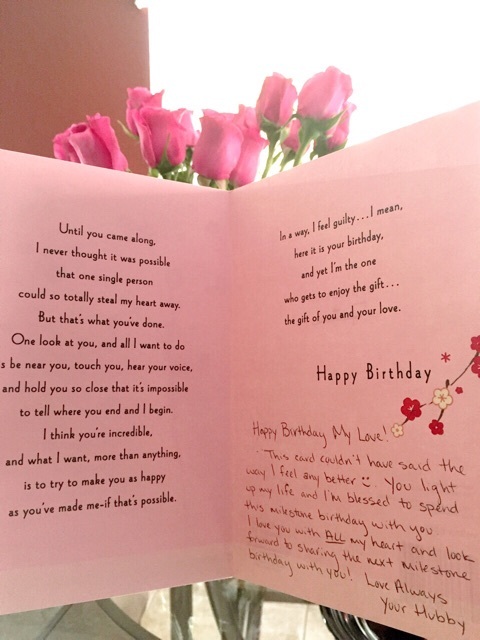 Until you came along,
I never thought it was possible
that one single person
could so totally steal my heart away.
But that's what you've done.
One look at you, and all I want to do
s be near you, touch you, hear your voice,
and hold you so close that it's impossible
to tell where you end and I begin.
I think you're incredible,
and what I want, more than anything,
is to try to make you as happy
as you've made me-if that's possible.
In a way, I feel guilty...I mean,
here it is your birthday,
and yet I'm the one
who gets to enjoy the gift...
the gift of you and your love.
Happy Birthday
Happy Birthday My Love!
This card couldn't have said the
way I feel any better You light
up my life and I'm blessed to spend
this milestone birthday with you
I love you with ALL my heart and look
forward to sharing the next milestone
birthday with you! Love Always
Your Hubby